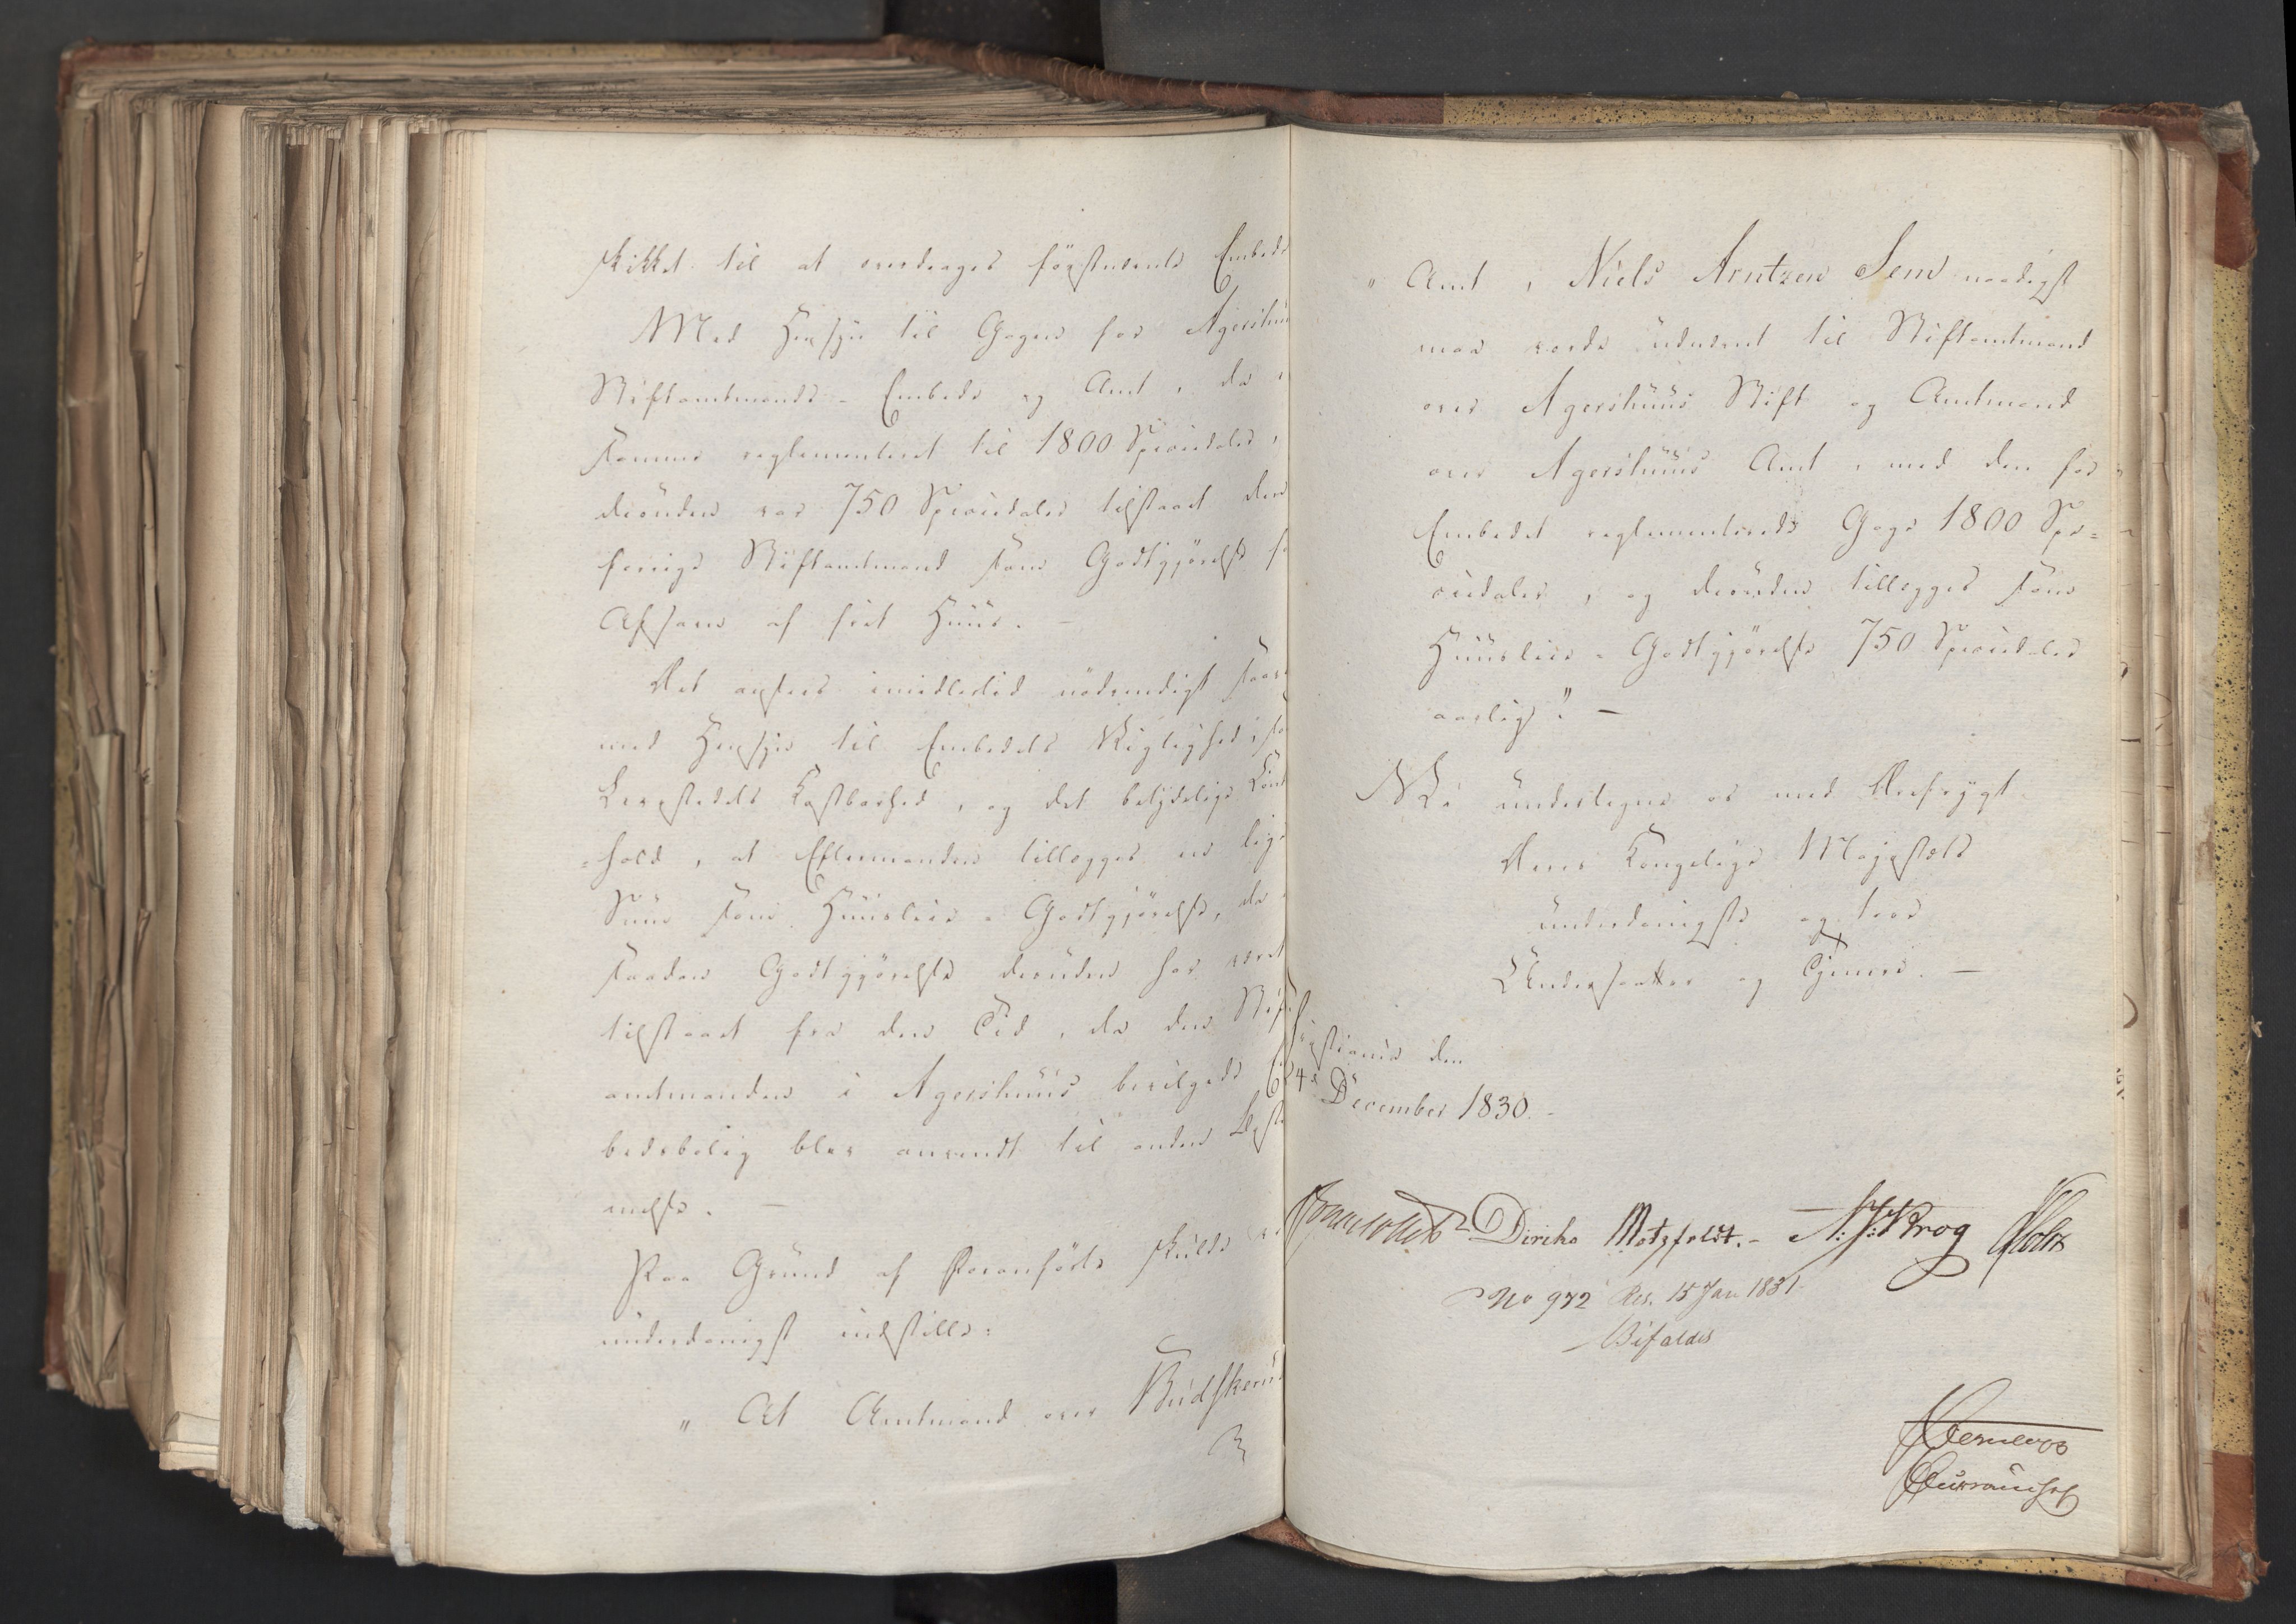 skikket til at overdrages førstnævnte Embede
Med Hensyn til Gagen for Agershuus
Stiftamtmands-Embede og Amt, da i
samme reglementeret til 1800 Speciedaler,
desuden var 750 Speciedaler tilstaaet den
forrige Stiftamtmand som Godtgjørelse f
Afsavn af frit Huus. –
Det ansees imidlertid nødvendigt saav
med Hensyn til Embedets Vigtighed, so
Levestedets Kostbarhed, og det betydelige Cont
=hold, at Eftermanden tillægges en lig
Sum som Huusleie-Godtgjørelse, da
saadan Godtgjørelse desuden har været
tilstaaet fra den Tid, da den Stift
amtmanden i Agershuus bevilgede E
bedsbolig blev anvendt til anden Beste
melse. –
Paa Grund af Foranførte skulde vi
underdanigst indstille:
" At Amtmand over Budskerud
" Amt, Niels Arntzen Sem naadigst
maa vorde udnævnt til Stiftamtmand
over Agershuus Stift og Amtmand
over Agershuus Amt, med den for
Embedet reglementerede Gage 1800 Spe=
ciedaler, og desuden tillægges som
Huusleie-Godtgjørelse 750 Speciedaler
aarlig". –
Vi undertegne os med Ærefrygt
Deres Kongelige Majestæts
underdanigste og troe
Undersaatter og Tjenere. –
Christiania den
4de December 1830. -
Jonas Collett Diriks Motzfeldt. - N: J: Krog Holst
No 972 Res. 15 Jan 1831.
Bifaldes